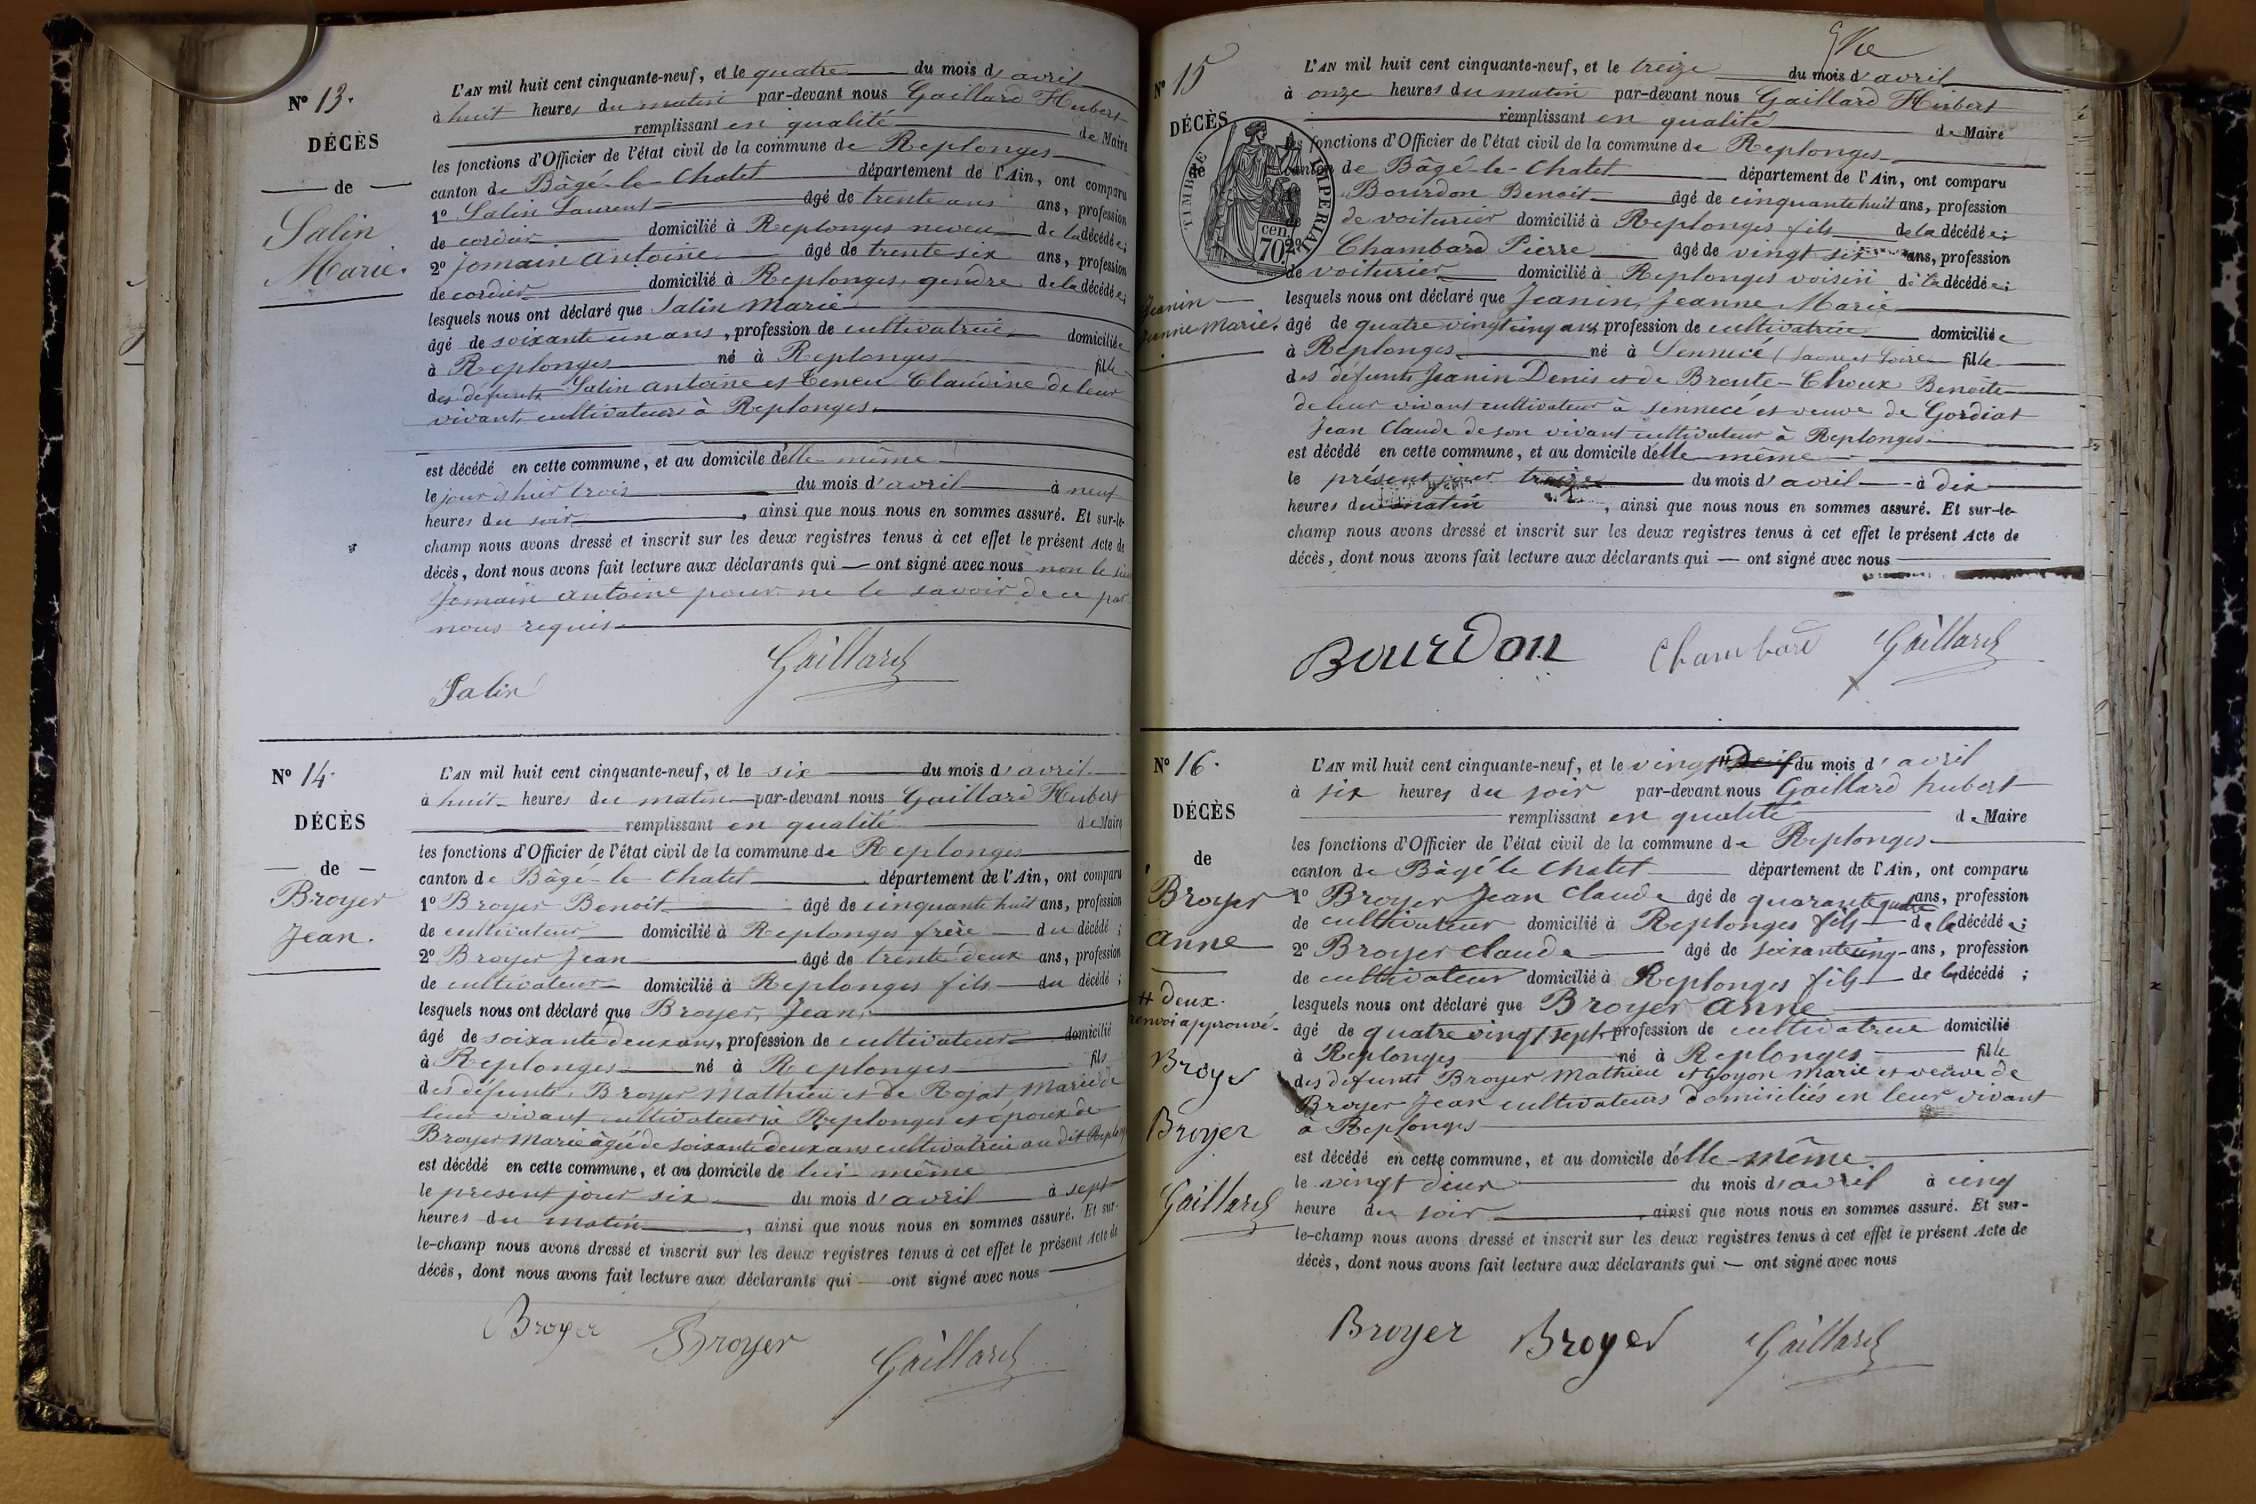 N° 13.
DÉCÈS
de
Salin
Marie.
L'AN mil huit cent cinquante-neuf, et le quatre du mois d'avril
à huit heures du matin par-devant nous Gaillard Hubert
remplissant en qualité de Maire
les fonctions d'Officier de l'état civil de la commune de Replonges
canton de Bâgé-le-Chatel département de l'Ain, ont comparu
1° Salin Laurent âgé de trente ans ans, profession
de cordier domicilié à Replonges neveu de la décédée;
2° Jomain antoine âgé de trente six ans, profession
de cordier domicilié à Replonges, gendre de la décédée;
lesquels nous ont déclaré que Salin Marie
âgé de soixante un ans, profession de cultivatrice domiciliée
à Replonges né à Replonges fille
des défunts Salin antoine et Teneu Claudine de leur
vivant, cultivateurs à Replonges.
est décédé en cette commune, et au domicile d'elle-même
le jour d'hier trois du mois d'avril à neuf
heures du soir, ainsi que nous nous en sommes assuré. Et sur-le-
champ nous avons dressé et inscrit sur les deux registres tenus à cet effet le présent Acte de
décès, dont nous avons fait lecture aux déclarants qui — ont signé avec nous non le sieur
Jomain antoine pour ne le savoir de ce par
nous requis
Salin Gaillard
N° 14.
DÉCÈS
de
Broyer
Jean.
L'AN mil huit cent cinquante-neuf, et le six du mois d'avril
à huit heures du matin par-devant nous Gaillard Hubert
remplissant en qualité de Maire
les fonctions d'Officier de l'état civil de la commune de Replonges
canton de Bâgé-le-Chatel département de l'Ain, ont comparu
1° Broyer Benoit âgé de cinquante huit ans, profession
de cultivateur domicilié à Replonges frère du décédé;
2° Broyer Jean âgé de trente deux ans, profession
de cultivateur domicilié à Replonges fils du décédé;
lesquels nous ont déclaré que Broyer, Jean,
âgé de soixante deux ans, profession de cultivateur domicilié
à Replonges né à Replonges fils
des défunts, Broyer Mathieu et de Rojat Marie de
leur vivant cultivateur à Replonges et époux de
Broyer Marie âgée de soixante deux ans cultivatrice au dit Replonges
est décédé en cette commune, et au domicile de lui-même
le présent jour six du mois d'avril à sept
heures du matin, ainsi que nous nous en sommes assuré. Et sur-
le-champ nous avons dressé et inscrit sur les deux registres tenus à cet effet le présent Acte de
décès, dont nous avons fait lecture aux déclarants qui — ont signé avec nous
Broyer Broyer Gaillard
N° 15
DÉCÈS
de
TIMBRE IMPÉRIAL
70 cen.
Jeanin
Jeanne Marie.
L'AN mil huit cent cinquante-neuf, et le treize du mois d'avril
à onze heures du matin par-devant nous Gaillard Hubert
remplissant en qualité de Maire
les fonctions d'Officier de l'état civil de la commune de Replonges
canton de Bâgé-le-Chatel département de l'Ain, ont comparu
Bourdon Benoit âgé de cinquante huit ans, profession
de voiturier domicilié à Replonges fils de la décédée;
2° Chambard Pierre âgé de vingt six ans, profession
de voiturier domicilié à Replonges voisin de la décédée;
lesquels nous ont déclaré que Jeanin, Jeanne Marie
âgé de quatre vingt cinq ans profession de cultivatrice domiciliée
à Replonges né à Sennecé (Saone et Loire fille
des défunts Jeanin Denis et de Broute-Choux Benoite
de leur vivant cultivateur à Sennecé et veuve de Gordiat
Jean Claude de son vivant cultivateur à Replonges
est décédé en cette commune, et au domicile d'elle-même
le présent jour treize du mois d'avril à dix
heures du matin, ainsi que nous nous en sommes assuré. Et sur-le-
champ nous avons dressé et inscrit sur les deux registres tenus à cet effet le présent Acte de
décès, dont nous avons fait lecture aux déclarants qui — ont signé avec nous
Bourdon Chambard Gaillard
N° 16.
DÉCÈS
de
Broyer
anne
# deux.
renvoi approuvé.
Broyer
Broyer
Gaillard
L'AN mil huit cent cinquante-neuf, et le vingt # du mois d'avril
à six heures du soir par-devant nous Gaillard hubert
remplissant en qualité de Maire
les fonctions d'Officier de l'état civil de la commune de Replonges
canton de Bâgé le Chatel département de l'Ain, ont comparu
1° Broyer Jean Claude âgé de quarante quatre ans, profession
de cultivateur domicilié à Replonges fils de la décédée;
2° Broyer Claude âgé de soixante cinq ans, profession
de cultivateur domicilié à Replonges fils de la décédé;
lesquels nous ont déclaré que Broyer anne
âgé de quatre vingt sept, profession de cultivatrice domicilié
à Replonges né à Replonges fille
des défunts Broyer Mathieu et Goyon Marie et veuve de
Broyer Jean cultivateurs domiciliés en leur vivant
à Replonges
est décédé en cette commune, et au domicile d'elle-même
le vingt deux du mois d'avril à cinq
heure du soir, ainsi que nous nous en sommes assuré. Et sur-
le-champ nous avons dressé et inscrit sur les deux registres tenus à cet effet le présent Acte de
décès, dont nous avons fait lecture aux déclarants qui — ont signé avec nous
Broyer Broyer Gaillard